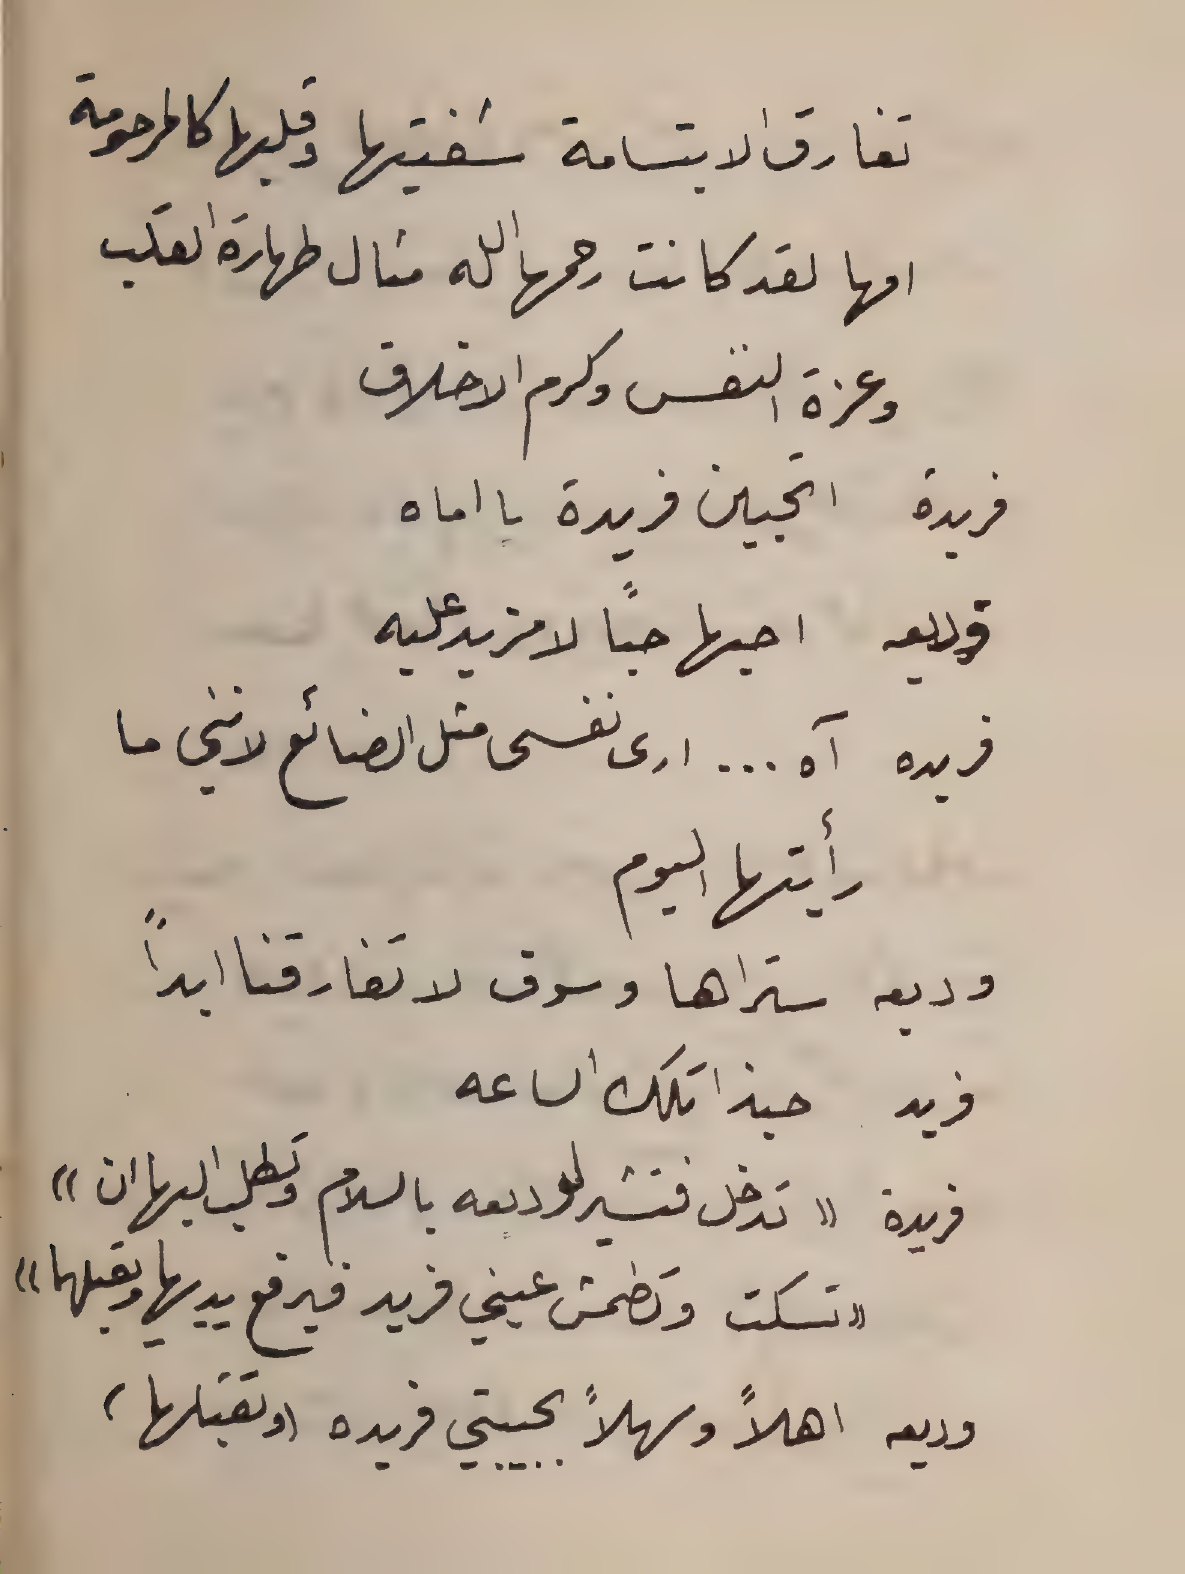 تفارق الابتسامة شفتيها وقلبها كالمرحومة
امها لقد كانت رحمها الله مثال طهارة القلب
وعزة النفس وكرم الاخلاق
فريدة اتحبين فريدة يا اماه
وديعه احبها حبًا لا مزيد عليه
فريده آه ... ارى نفسي مثل الضائع لانني ما
رأيتها اليوم
وديعه ستراها وسوف لا تفارقنا ابداً
فريد حبذا تلك الساعه
فريدة «تدخل فتشير لوديعه بالسلام وتطلب اليها ان»
«تسكت وتطمش عيني فريد فيرفع يديها ويقبلها»
وديعه اهلاً وسهلاً بحبيبتي فريده (وتقبلها)